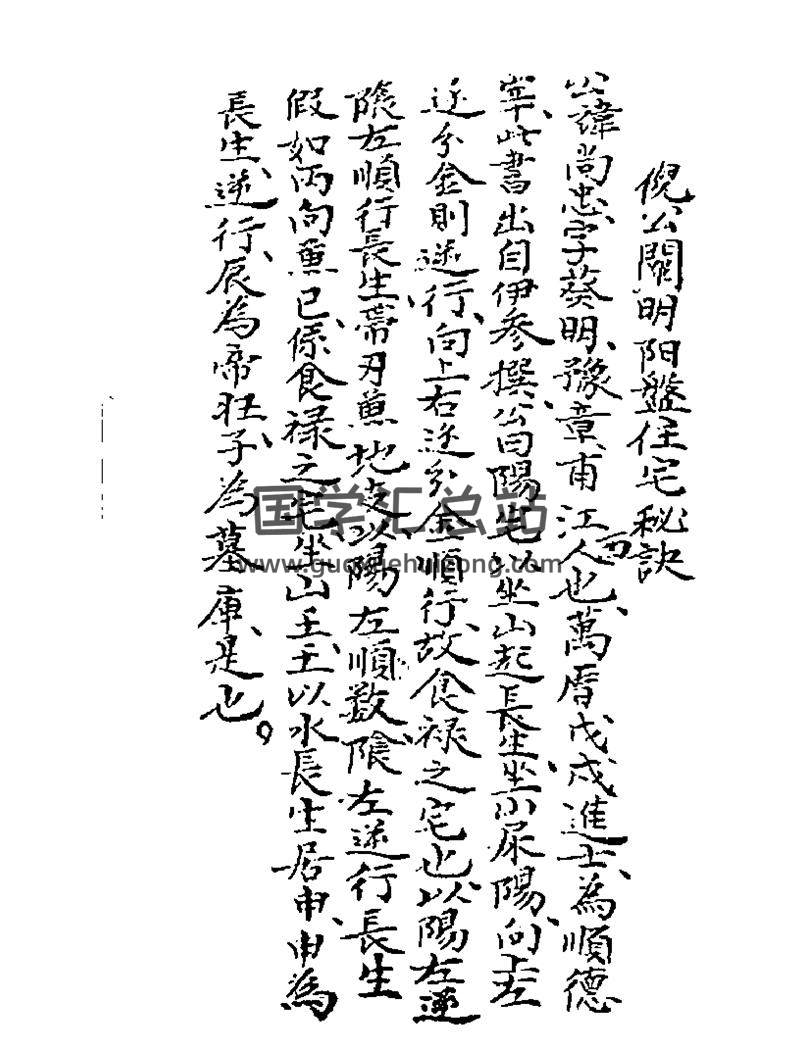 倪公闢明阳盤住宅秘訣
公諱尚忠字葵明豫章甫江人也萬曆戊戌進士為順德
西
宰此書出自伊參撰公曰陽宅以坐山起長生坐山屬陽向上左
逆分金則逆行向上右逆分金順行故食祿之宅也以陽左逆
陰左順行長生帶刃兼地支以陽左順數陰左逆行長生
假如丙向兼巳係食禄之宅坐山壬壬以水長生居申申為
長生逆行辰為帝旺子為墓庫是也。
国学汇总站
www.guoxuehuizong.com